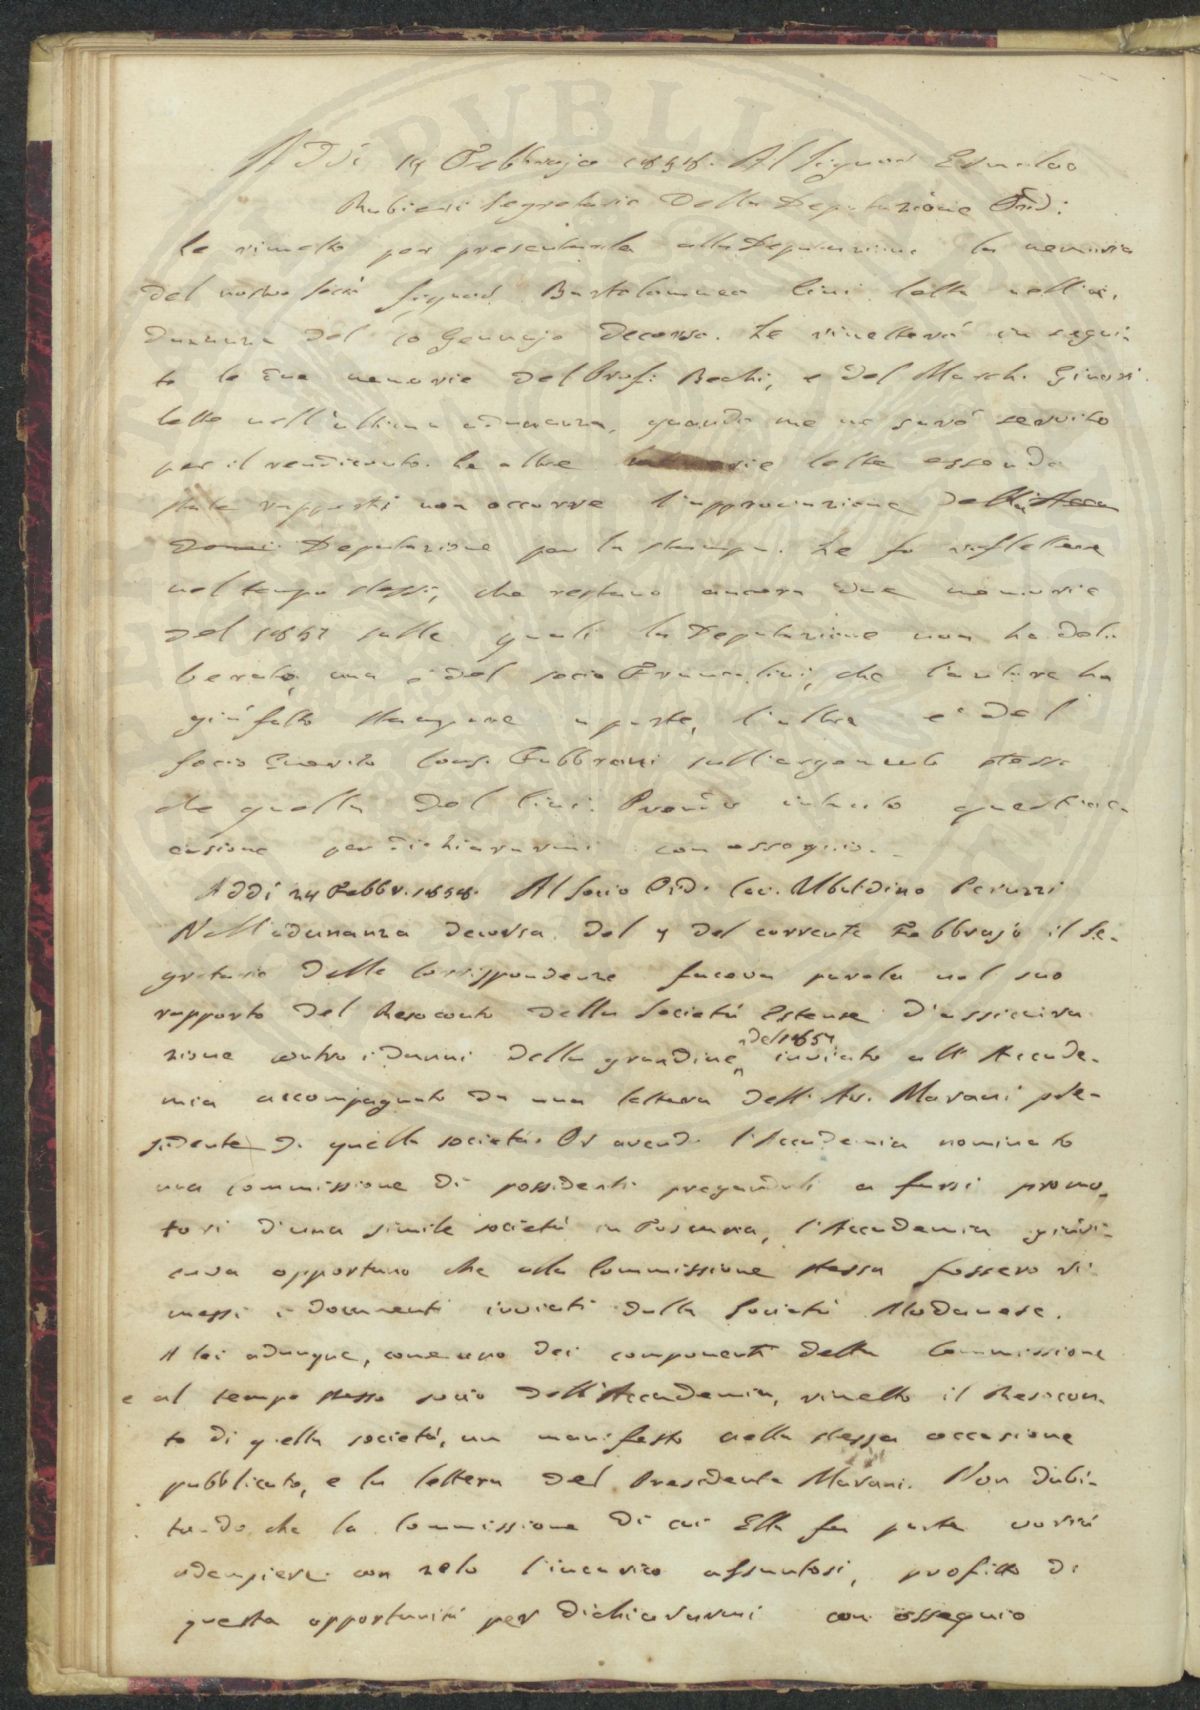 Addì 14 Febbrajo 1858. Al Signor Ermolao
Rubieri Segretario della Deputazione Ord:
Le rimetto per presentarla alla Deputazione la memoria
del nostro socio Signor Bartolommeo Cini letta nell'a,
dunanza del 10 Gennajo decorso. Le rimetterò in segui-
to le due memorie del Prof. Bechi, e del March. Ginori
lette nell'ultima adunanza, quando me ne sarò servito
per il rendiconto. Le altre memorie lette essendo
state rapporti non occorre l'approvazione della Acca
demi. Deputazione per la stampa. Le fo riflettere
nel tempo stesso, che restano ancora due memorie
del 1857 sulle quali la Deputazione non ha deli-
berato, una è del socio Francolini, che l'autore ha
già fatto stampare a parte, l'altra è del
socio Onorario Cons. Fabbroni sull'argomento stesso
che quella del Cini. Prendo intanto quest'oc-
casione per dichiararmi con ossequio.
Addì 24 Febbr. 1858. Al socio Ord. Cav. Ubaldino Peruzzi
Nell'adunanza decorsa del 7 del corrente Febbrajo il Se-
gretario delle Corrispondenze faceva parola nel suo
rapporto del Resoconto della Società Estense d'assicura
zione contro i danni della grandine del 1857 inviato all'Accade-
mia accompagnato da una lettera dell'Av. Marani pre-
sidente di quella società. Or avendo l'Accademia nominato
una commissione di possidenti pregandoli a farsi promo-
tori d'una simile società in Toscana, l'Accademia giudi-
cava opportuno che alla Commissione stessa fossero ri-
messi i documenti inviati dalla Società Modanese.
A lei adunque, come uno dei componenti della Commissione
e al tempo stesso socio dell'Accademia, rimetto il Resocon-
to di quella società, un manifesto nella stessa occasione
pubblicato, e la lettera del Presidente Marani. Non dubi-
tando che la Commissione di cui Ella fa parte vorrà
adempiere con zelo l'incarico assuntosi, profitto di
questa opportunità per dichiararmi con ossequio